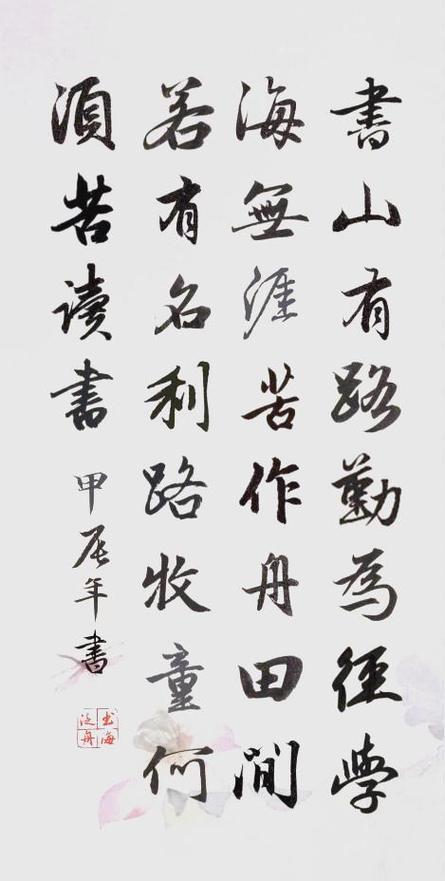 書山有路勤為徑學
海無涯苦作舟田間
若有名利路牧童何
須苦讀書
甲辰年書
书海泛舟